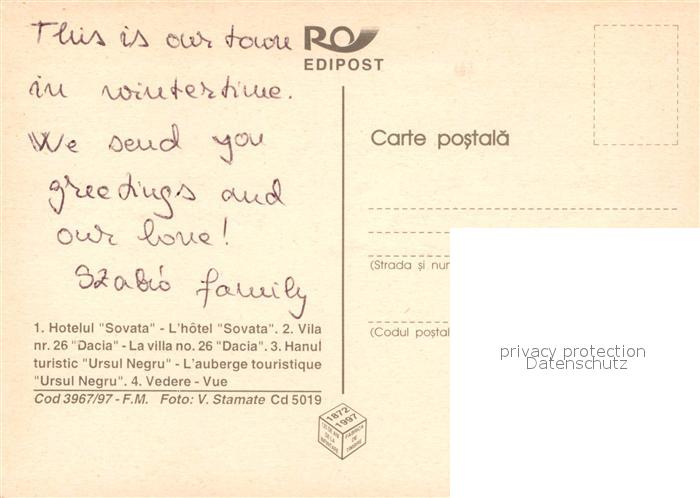 This is our town
in wintertime.
We send you
greetings and
our love!
Szabó family
RO
EDIPOST
Carte poştală
(Strada şi nur
(Codul poştal
1. Hotelul "Sovata" - L'hôtel "Sovata". 2. Vila
nr. 26 "Dacia" - La villa no. 26 "Dacia". 3. Hanul
turistic "Ursul Negru" - L'auberge touristique
"Ursul Negru". 4. Vedere - Vue
Cod 3967/97 - F.M. Foto: V. Stamate Cd 5019
1872
1997
125 DE ANI
DE LA
ÎNFIINŢARE
FABRICA
DE
TIMBRE
privacy protection
Datenschutz